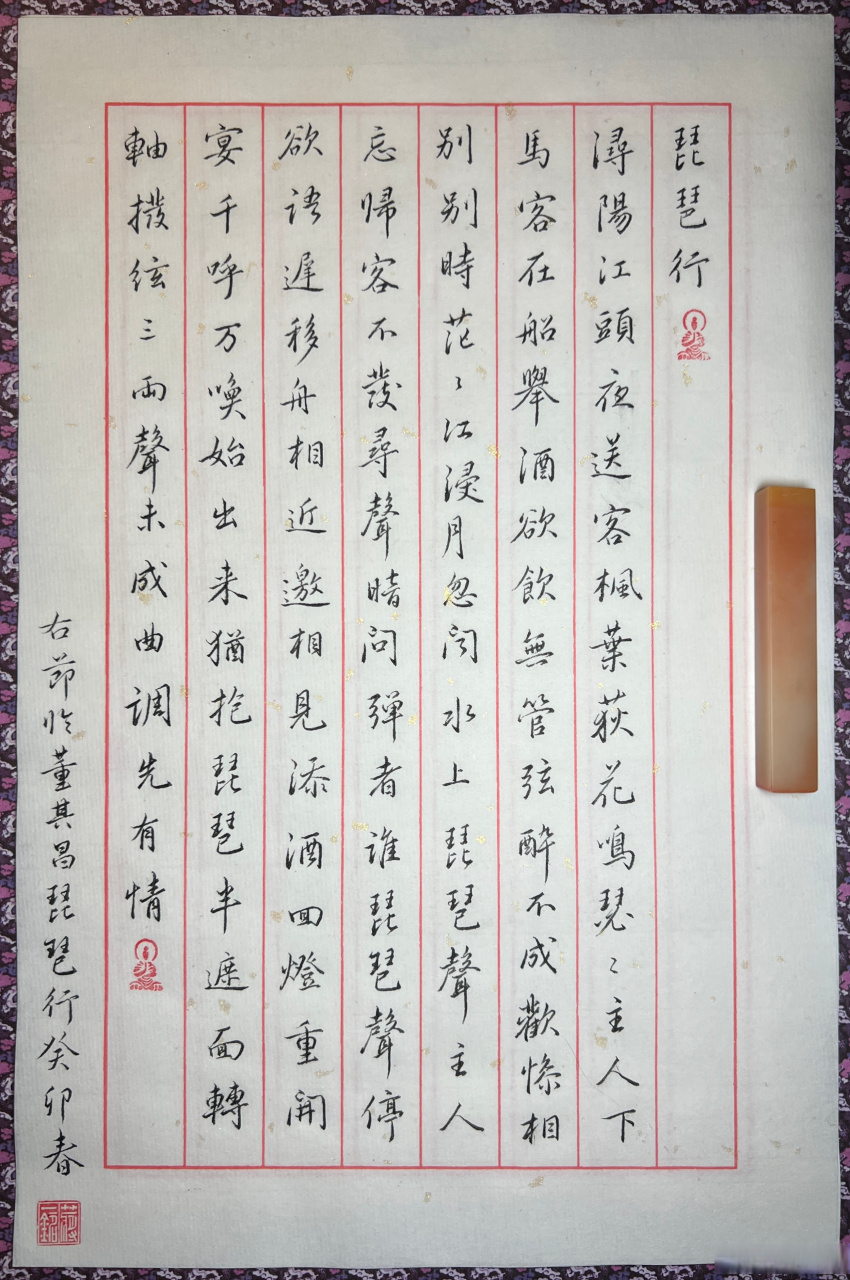 琵琶行
潯陽江頭夜送客楓葉荻花鳴瑟〻主人下
馬客在船舉酒欲飲無管弦醉不成歡慘相
別別時茫〻江浸月忽聞水上琵琶聲主人
忘歸客不發尋聲暗问彈者誰琵琶聲停
欲語遲移舟相近邀相見添酒回燈重開
宴千呼万喚始出来猶抱琵琶半遮面轉
軸撥絃三兩聲未成曲調先有情
右節临董其昌琵琶行癸卯春